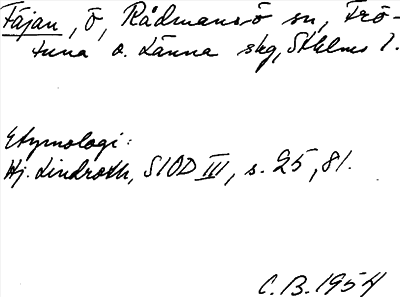 Fåjan, ö, Rådmansö sn, Frö-
tuna o. Länna skg, Sthlms l.
Etymologi:
Hj. Lindroth, SIOD III, s. 25, 81.
C.B. 1954